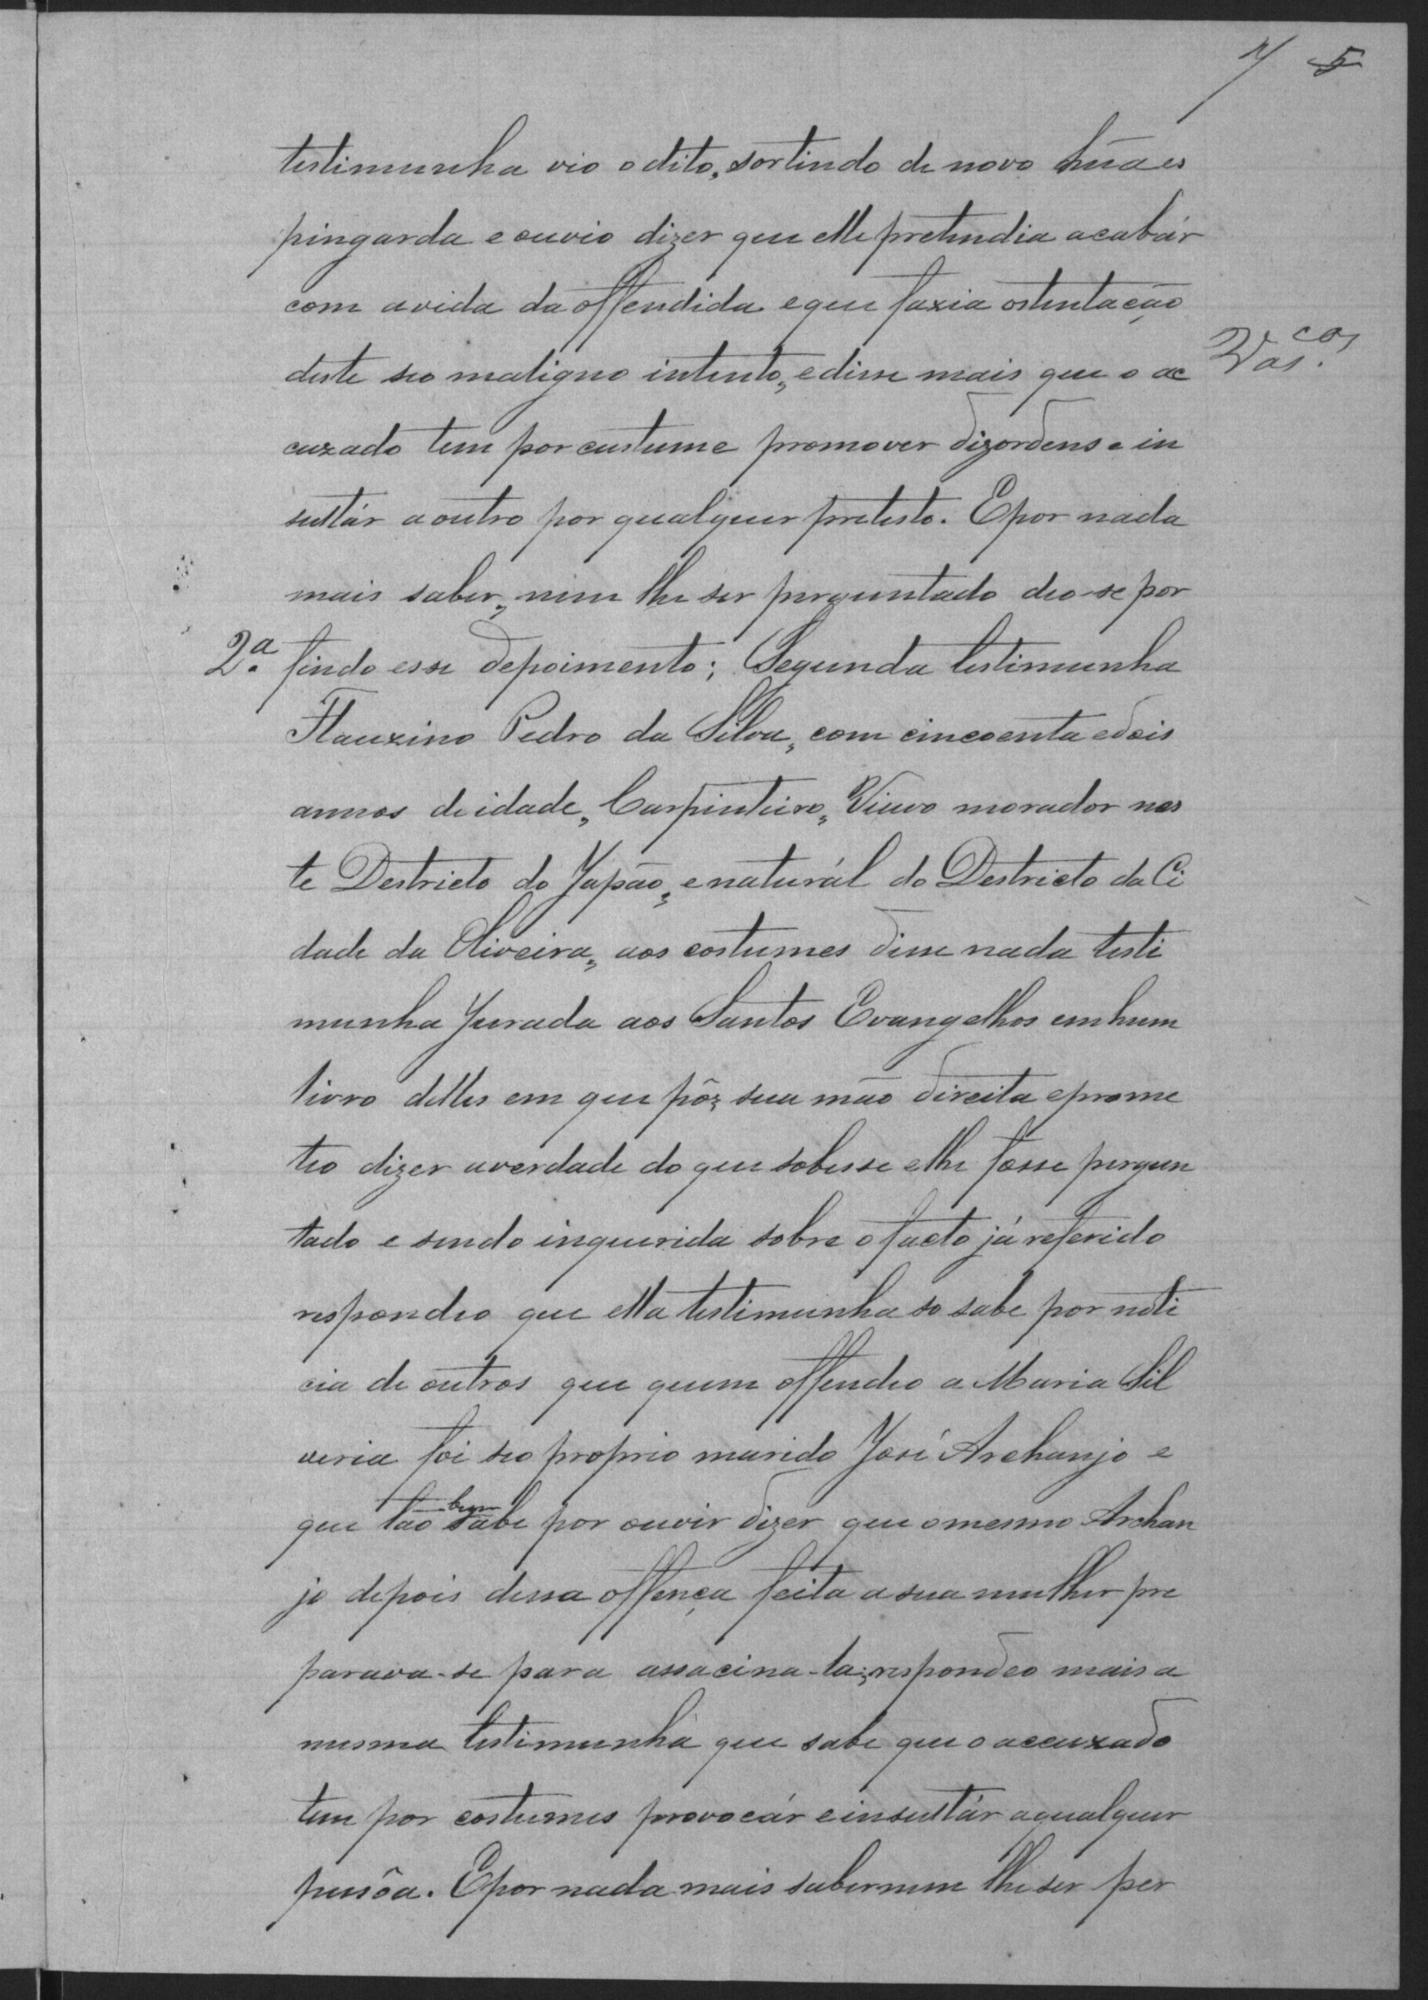 7 5
testimunha vio o dito, sortindo de novo hũa es
pingarda e ouvio dizer que elle pretendia acabár
com a vida da offendida e que faxia ostentação
deste seo maligno intento, e disse mais que o ac
Vas.cos
cuzado tem por custume promover dizordens e in
sultár a outro por qualquer pretesto. E por nada
mais saber, nem lhe ser perguntado deo-se por
2.a findo esse depoimento; Segunda testimunha
Flauzino Pedro da Silva, com cincoenta e dois
annos de idade, Carpinteiro, Viuvo morador nes
te Destricto do Japão, e naturál do Destricto da Ci
dade da Oliveira, aos costumes disse nada testi
munha Jurada aos Santos Evangelhos em hum
livro delles em que pôz sua mão direita e prome
teo dizer a verdade do que sobesse e lhe fosse pergun
tado e sendo inquerida sobre o facto já referido
respondeo que ella testimunha so sabe por noti
cia de outros que quem offendeo a Maria Sil
veria foi seo proprio marido José Archanjo e
que tão bem sabe por ouvir dizer que o mesmo Archan
jo depois dessa offença feita a sua mulher pre
parava-se para assacina-la; respondeo mais a
mesma testimunha que sabe que o accuzado
tem por costumes provocár e insultár a qualquer
pessôa. E por nada mais saber nem lhe ser per